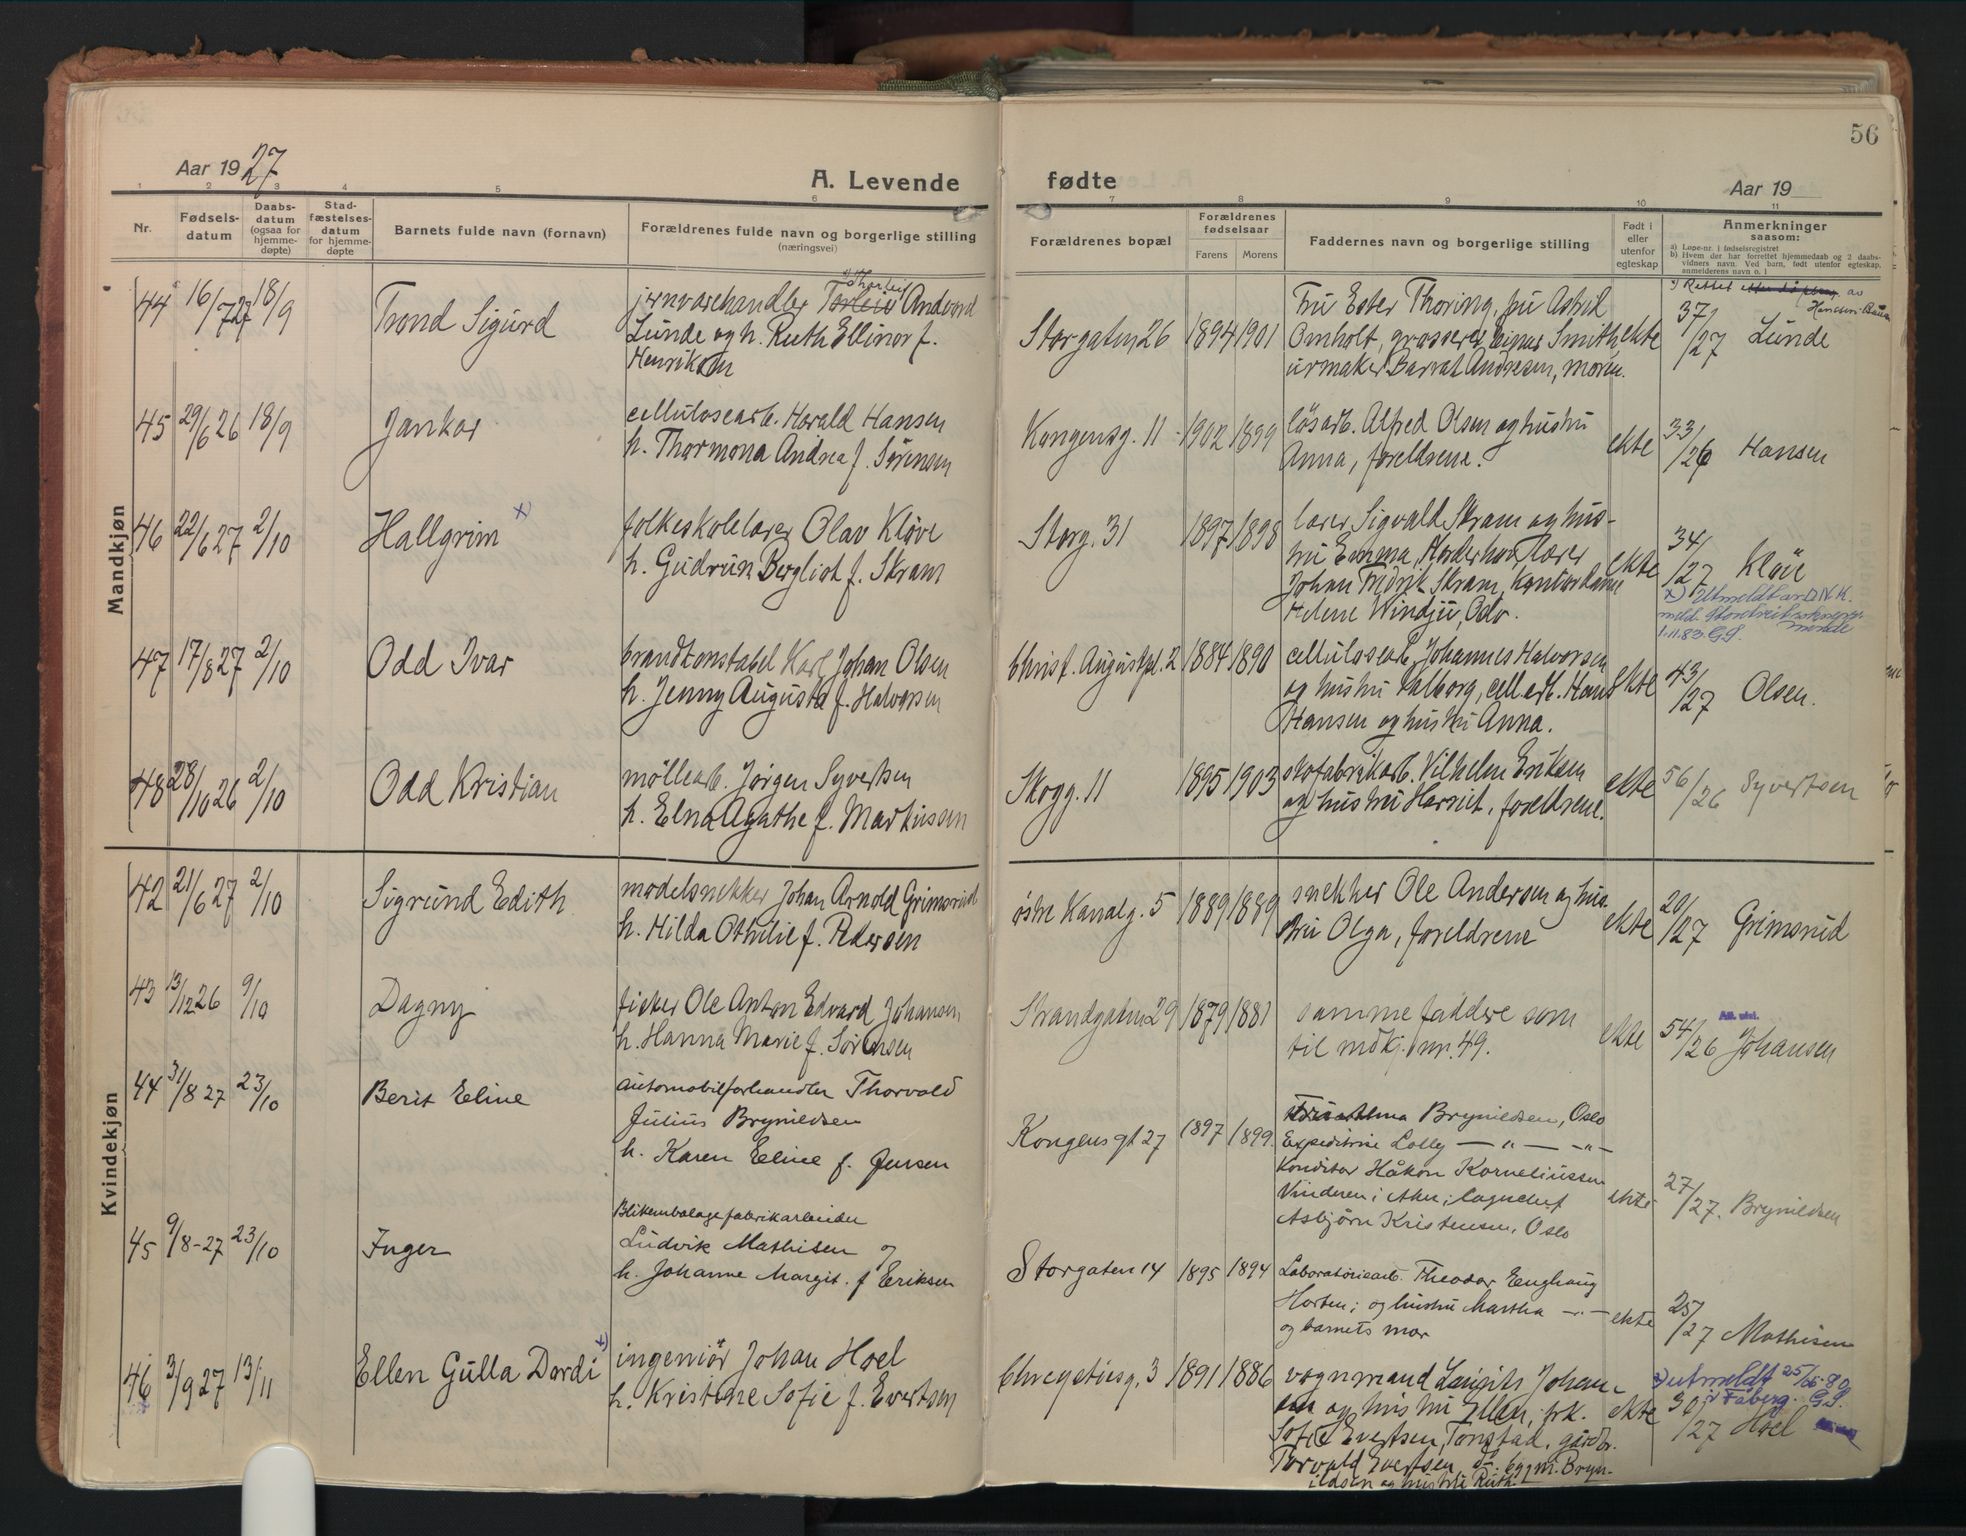 56
Aar 1927
A. Levende
fødte
Aar 19
1 2 3 4 5 6 7 8 9 10 11
Nr.
Fødsels-
datum
Daabs-
datum
(ogsaa for
hjemme-
døpte)
Stad-
fæstelses-
datum
for hjemme-
døpte
Barnets fulde navn (fornavn)
Forældrenes fulde navn og borgerlige stilling
(næringsvei)
Forældrenes bopæl
Forældrenes
fødselsaar
Farens Morens
Faddernes navn og borgerlige stilling
Født i
eller
utenfor
egteskap
Anmerkninger
saasom:
a) Løpe-nr. i fødselsregistret
b) Hvem der har forrettet hjemmedaab og 2 daabs-
vidners navn. Ved barn, født utenfor egteskap,
anmelderens navn o. l
Mandkjøn
44 16/7 27 18/9
Trond Sigurd
jernvarehandler Torleif Andvord
Lunde og h. Ruth Ellinor f.
Henriksen
Storgaten 26 1894 1901
Fru Ester Thoring, fru Astrid
Omholt, grosserer Einar Smith
urmaker Andresen, moren.
ekte
37/27 Lunde
45 29/6 26 18/9
Jankar
cellulosearb. Harald Hansen
h. Thormona Andrea f. Sörensen
Kongensg. 11 1902 1899
løsarb. Alfred Olsen og hustru
Anna, foreldrene.
ekte
33/26 Hansen
46 22/6 27 2/10
Hallgrim x)
folkeskolelærer Olav Kløve
h. Gudrun Bergliot f. Skram
Storg. 31 1897 1898
lærer Sigvald Skram og hus-
tru Emma, lærer
Johan Fredrik Skram, Kontordame
Helene
ekte
34/27 Kløve
x) Utmeldt av D.N.K.
1.11.83. G.S.
47 17/8 27 2/10
Odd Ivar
brandkonstabel Karl Johan Olsen
h. Jenny Augusta f. Halvorsen
Christ. Augustspl. 2 1884 1890
cellulosearb. Johannes Halvorsen
og hustru Valborg, cell.arb. Hans
Hansen og hustru Anna.
ekte
43/27 Olsen.
48 28/10 26 2/10
Odd Kristian
møllearb. Jørgen Syvertsen
h. Elna Agathe f. Markussen
Skogg. 11 1895 1903
skofabrikarb. Vilhelm Eriksen
og hustru Harriet, foreldrene.
ekte
56/26 Syvertsen
Kvindekjøn
42 21/6 27 2/10
Sigrund Edith
modelsnekker Johan Arnold Grimsrud
h. Hilda Othilie f. Pedersen
østre Kanalg. 5 1889 1889
snekker Ole Andersen og hus-
tru Olga, foreldrene
ekte
20/27 Grimsrud
43 13/12 26 9/10
Dagny
fisker Ole Anton Edvard Johansen
h. Hanna Marie f. Sörensen
Strandgaten 29 1879 1881
samme faddere som
til mdkj. nr. 49.
ekte
54/26 Johansen
44 31/8 27 23/10
Berit Eline
Automobilforhandler Thorvald
Julius Brynildsen
h. Karen Eline f. Jensen
Kongens gt 27 1897 1899.
Alma Brynildsen, Oslo
Expeditrice Lolly — " — — " —
Konditor Håkon Korneliussen
Vinderen i Aker; lagerchef
Asbjørn Kristensen, Oslo
ekte
27/27. Brynildsen
45 9/8-27 23/10
Inger
Blikembalagefabrikarbeider
Ludvik Mathisen og
h. Johanne Margit f Eriksen
Storgaten 14 1895 1894
Laboratoriearb. Theodor Enghaug
Horten; og hustru Martha — " —
og barnets mor
ekte
25/27 Mathisen
46 3/9 27 13/11
Ellen Gulla Dordi x)
ingeniör Johan Hoel
h. Kristiane Sofie f. Evertsen
Chrystiesg. 3 1891 1886
vognmand Lauritz Johan-
sen og hustru Ellen, frk.
Sofie Evertsen, Tonstad, gårdbr.
Torvald Evertsen, byggm. Bryn-
ildsen og hustru Ruth
ekte
x) utmeldt 25/
i Fåberg. G.S.
30/27 Hoel